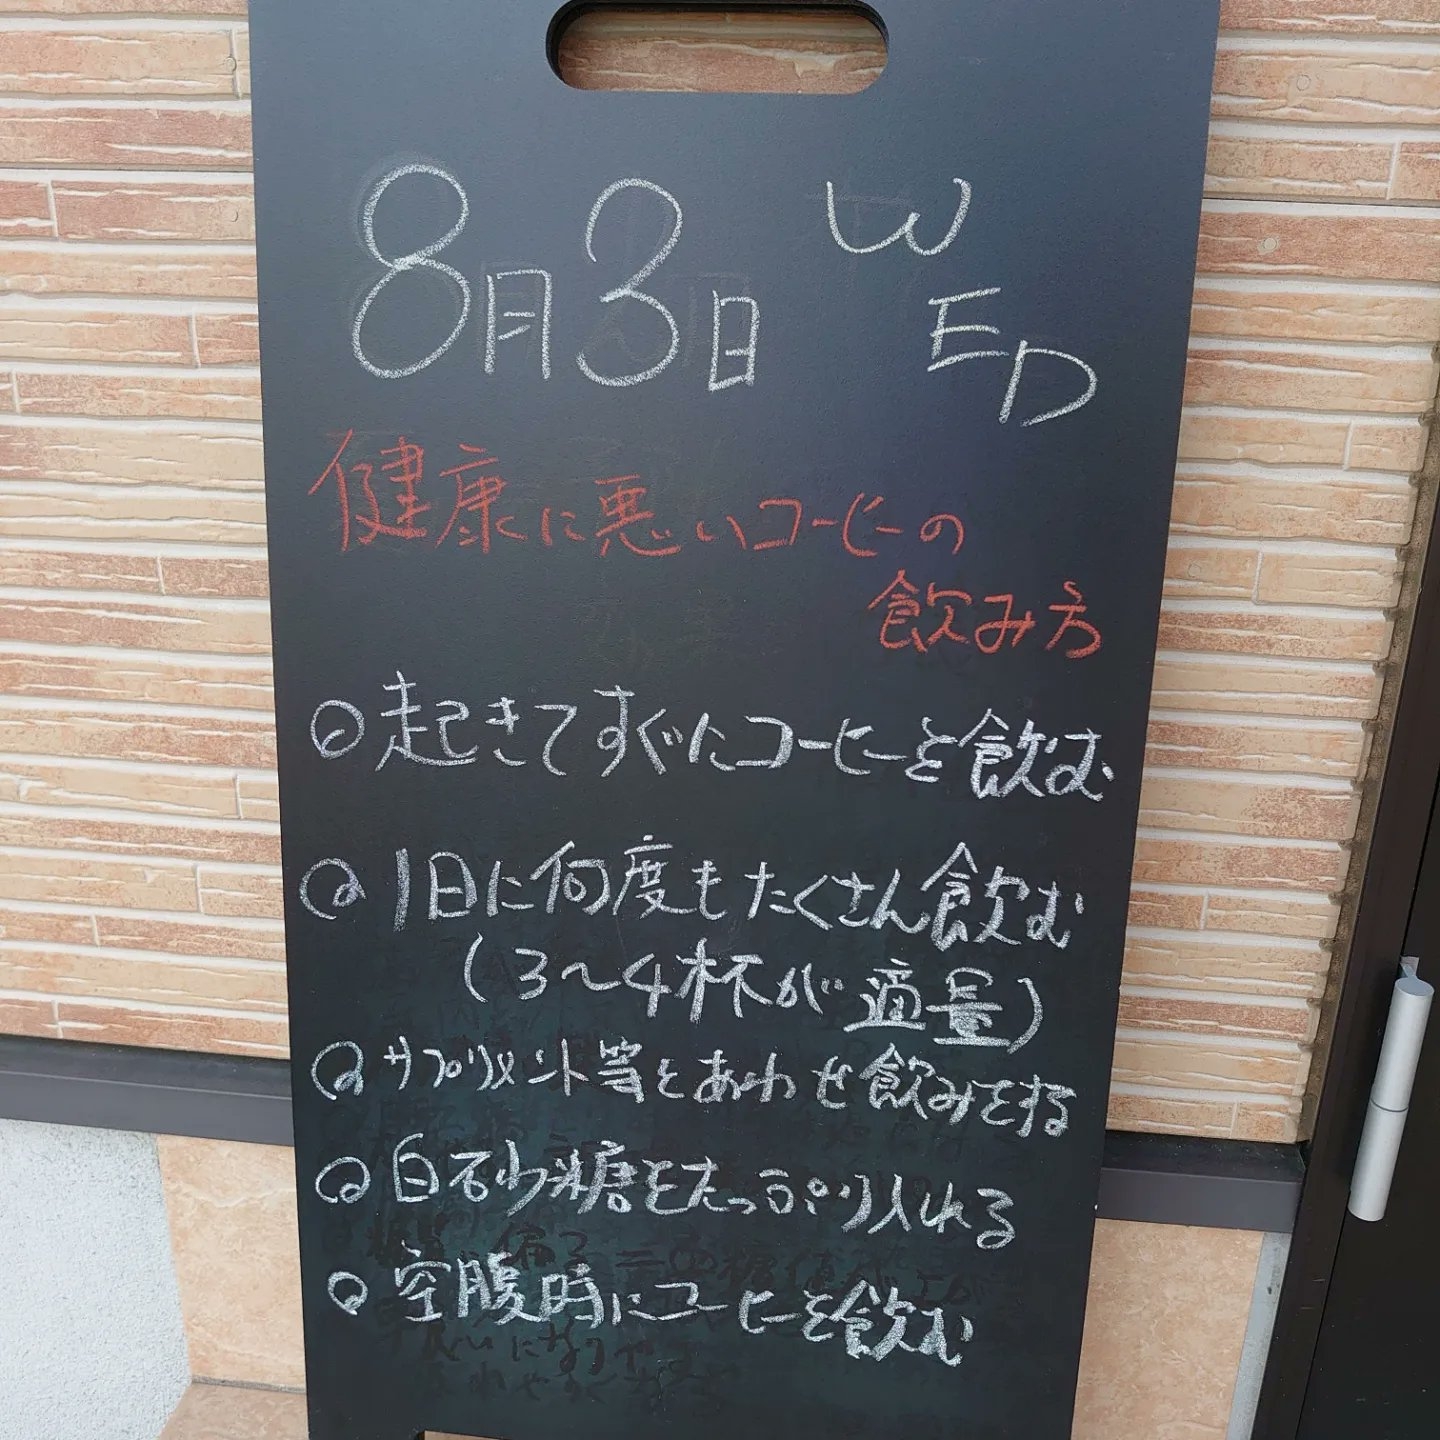 8月3日 WED
健康に悪いコーヒーの
飲み方
起きてすぐにコーヒーを飲む
1日に何度もたくさん飲む
(3〜4杯が適量)
サプリメント等とあわせ飲みをする
白砂糖をたっぷり入れる
空腹時にコーヒーを飲む